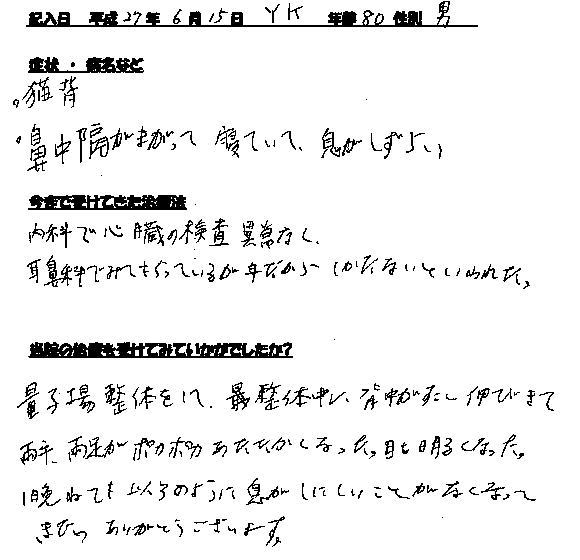 記入日 平成27年 6月15日 YK 年齢80 性別 男
症状・病名など
。猫背
・鼻中隔がまがって 寝ていて、息がしずらい
今まで受けてきた治療法
内科で心臓の検査 異常なく、
耳鼻科でみてもらっているが年だから しかたないといわれた。
当院の治療を受けてみていかがでしたか?
量子場整体をして、 整体中に、背中がすこし伸びきて
両手、両足がポカポカあたたかくなった。目も明るくなった。
1晩ねても 以前のように息がしにくいことがなくなって
きた。 ありがとうございます。